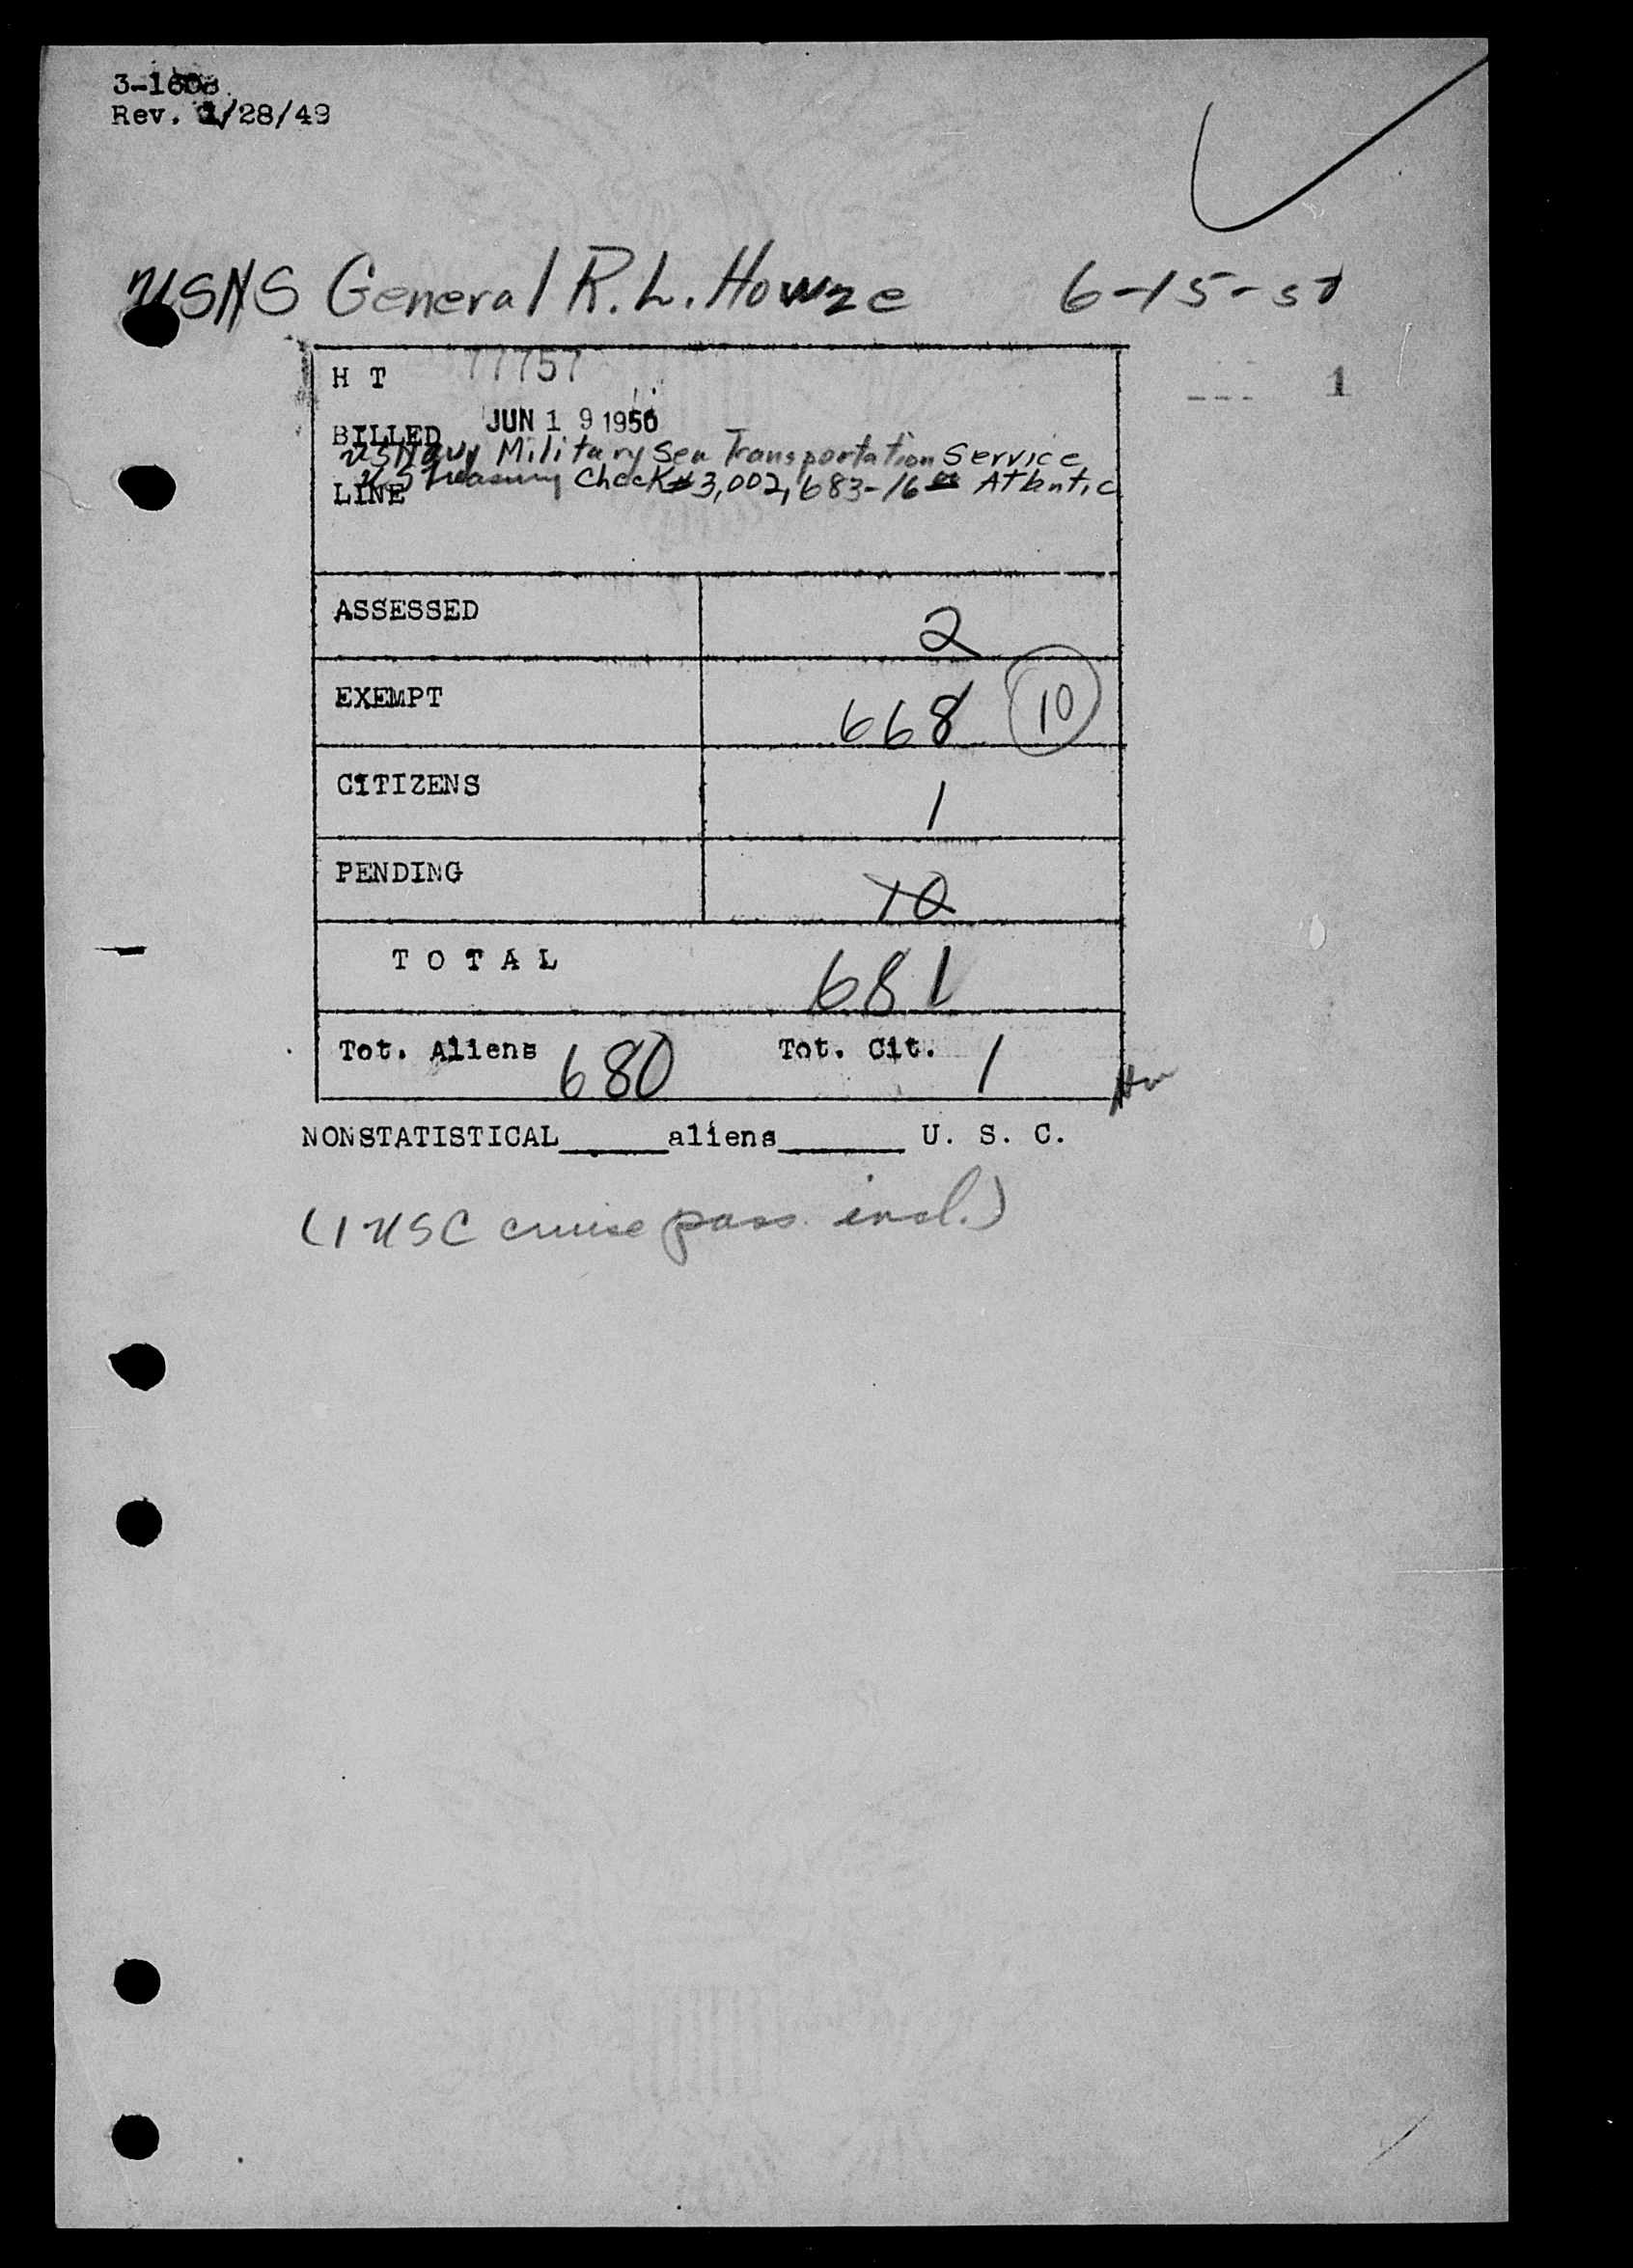 3-1608
Rev. 1/28/49
USNS General R.L. Howze 6-15-50
1
H T 77757
BILLED JUN 19 1950
US Navy Military Sea Transportation Service
LINE US Treasury Check #3,002,683-16⁰⁰ Atlantic
ASSESSED 2
EXEMPT 668 10
CITIZENS 1
PENDING 10
T O T A L 681
Tot. Aliens 680 Tot. Cit. 1
NONSTATISTICAL_____aliens______ U. S. C.
(1 USC cruise pass. incl.)